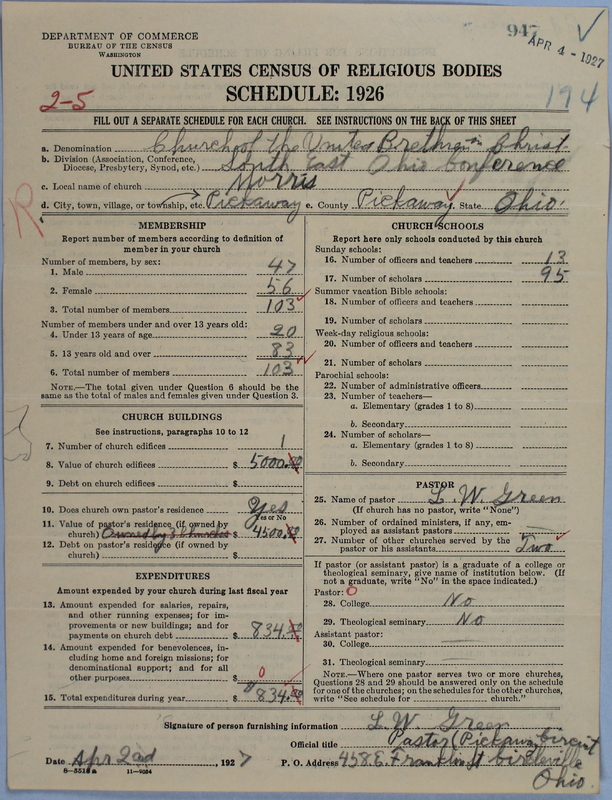 DEPARTMENT OF COMMERCE
BUREAU OF THE CENSUS
WASHINGTON
947
APR 4 - 1927
UNITED STATES CENSUS OF RELIGIOUS BODIES
SCHEDULE: 1926
2-5
194
FILL OUT A SEPARATE SCHEDULE FOR EACH CHURCH. SEE INSTRUCTIONS ON THE BACK OF THIS SHEET
a. Denomination Church of the United Brethren in Christ
b. Division (Association, Conference, Diocese, Presbytery, Synod, etc.) South East Ohio Conference
c. Local name of church Morris
d. City, town, village, or township, etc. Pickaway e. County Pickaway State Ohio.
MEMBERSHIP
Report number of members according to definition of
member in your church
Number of members, by sex:
1. Male 47
2. Female 56
3. Total number of members 103
Number of members under and over 13 years old:
4. Under 13 years of age 20
5. 13 years old and over 83
6. Total number of members 103
NOTE.—The total given under Question 6 should be
same as the total of males and females given under Question 3.
CHURCH BUILDINGS
See instructions, paragraphs 10 to 12
7. Number of church edifices 1
8. Value of church edifices $ 5000.00
9. Debt on church edifices $
10. Does church own pastor's residence Yes
Yes or No
11. Value of pastor's residence (if owned by
church) Owned by 3 Churches $ 4500.00
12. Debt on pastor's residence (if owned by
church) $
EXPENDITURES
Amount expended by your church during last fiscal year
13. Amount expended for salaries, repairs,
and other running expenses; for im-
provements or new buildings; and for
payments on church debt $ 834.00
14. Amount expended for benevolences,
including home and foreign missions; for
denominational support; and for all
other purposes $ 0
15. Total expenditures during year $ 834.00
CHURCH SCHOOLS
Report here only schools conducted by this church
Sunday schools:
16. Number of officers and teachers 13
17. Number of scholars 95
Summer vacation Bible schools:
18. Number of officers and teachers
19. Number of scholars
Week-day religious schools:
20. Number of officers and teachers
21. Number of scholars
Parochial schools:
22. Number of administrative officers
23. Number of teachers—
a. Elementary (grades 1 to 8)
b. Secondary
24. Number of scholars—
a. Elementary (grades 1 to 8)
b. Secondary
PASTOR
25. Name of pastor L. W. Green
(If church has no pastor, write "None")
26. Number of ordained ministers, if any, em-
ployed as assistant pastors
27. Number of other churches served by the
pastor or his assistants Two
If pastor (or assistant pastor) is a graduate of a college or
theological seminary, give name of institution below. (If
not a graduate, write "No" in the space indicated.)
Pastor: 0
28. College No
29. Theological seminary No
Assistant pastor:
30. College
31. Theological seminary
NOTE.—Where one pastor serves two or more churches,
Questions 28 and 29 should be answered only on the schedule
for one of the churches; on the schedules for the other churches,
write "See schedule for church."
Signature of person furnishing information L. W. Green
Official title Pastor (Pickaway Circuit
Date Apr 2nd, 1927 P. O. Address 458 E. Franklin St Circleville
Ohio.
8-5516a 11-9084